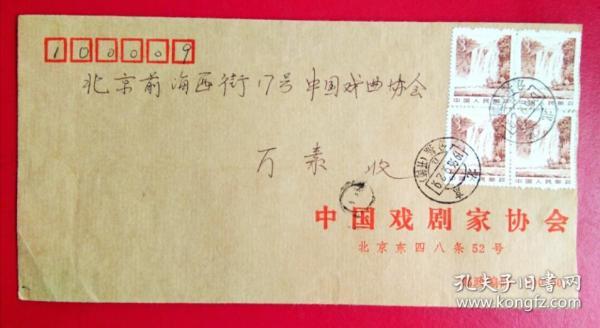 100009
北京前海西街17号中国戏曲协会
万素 收
中国人民邮政
中国人民邮政
中国人民邮政
中国人民邮政
中国戏剧家协会
北京东四八条52号
孔夫子旧书网
www.kongfz.com